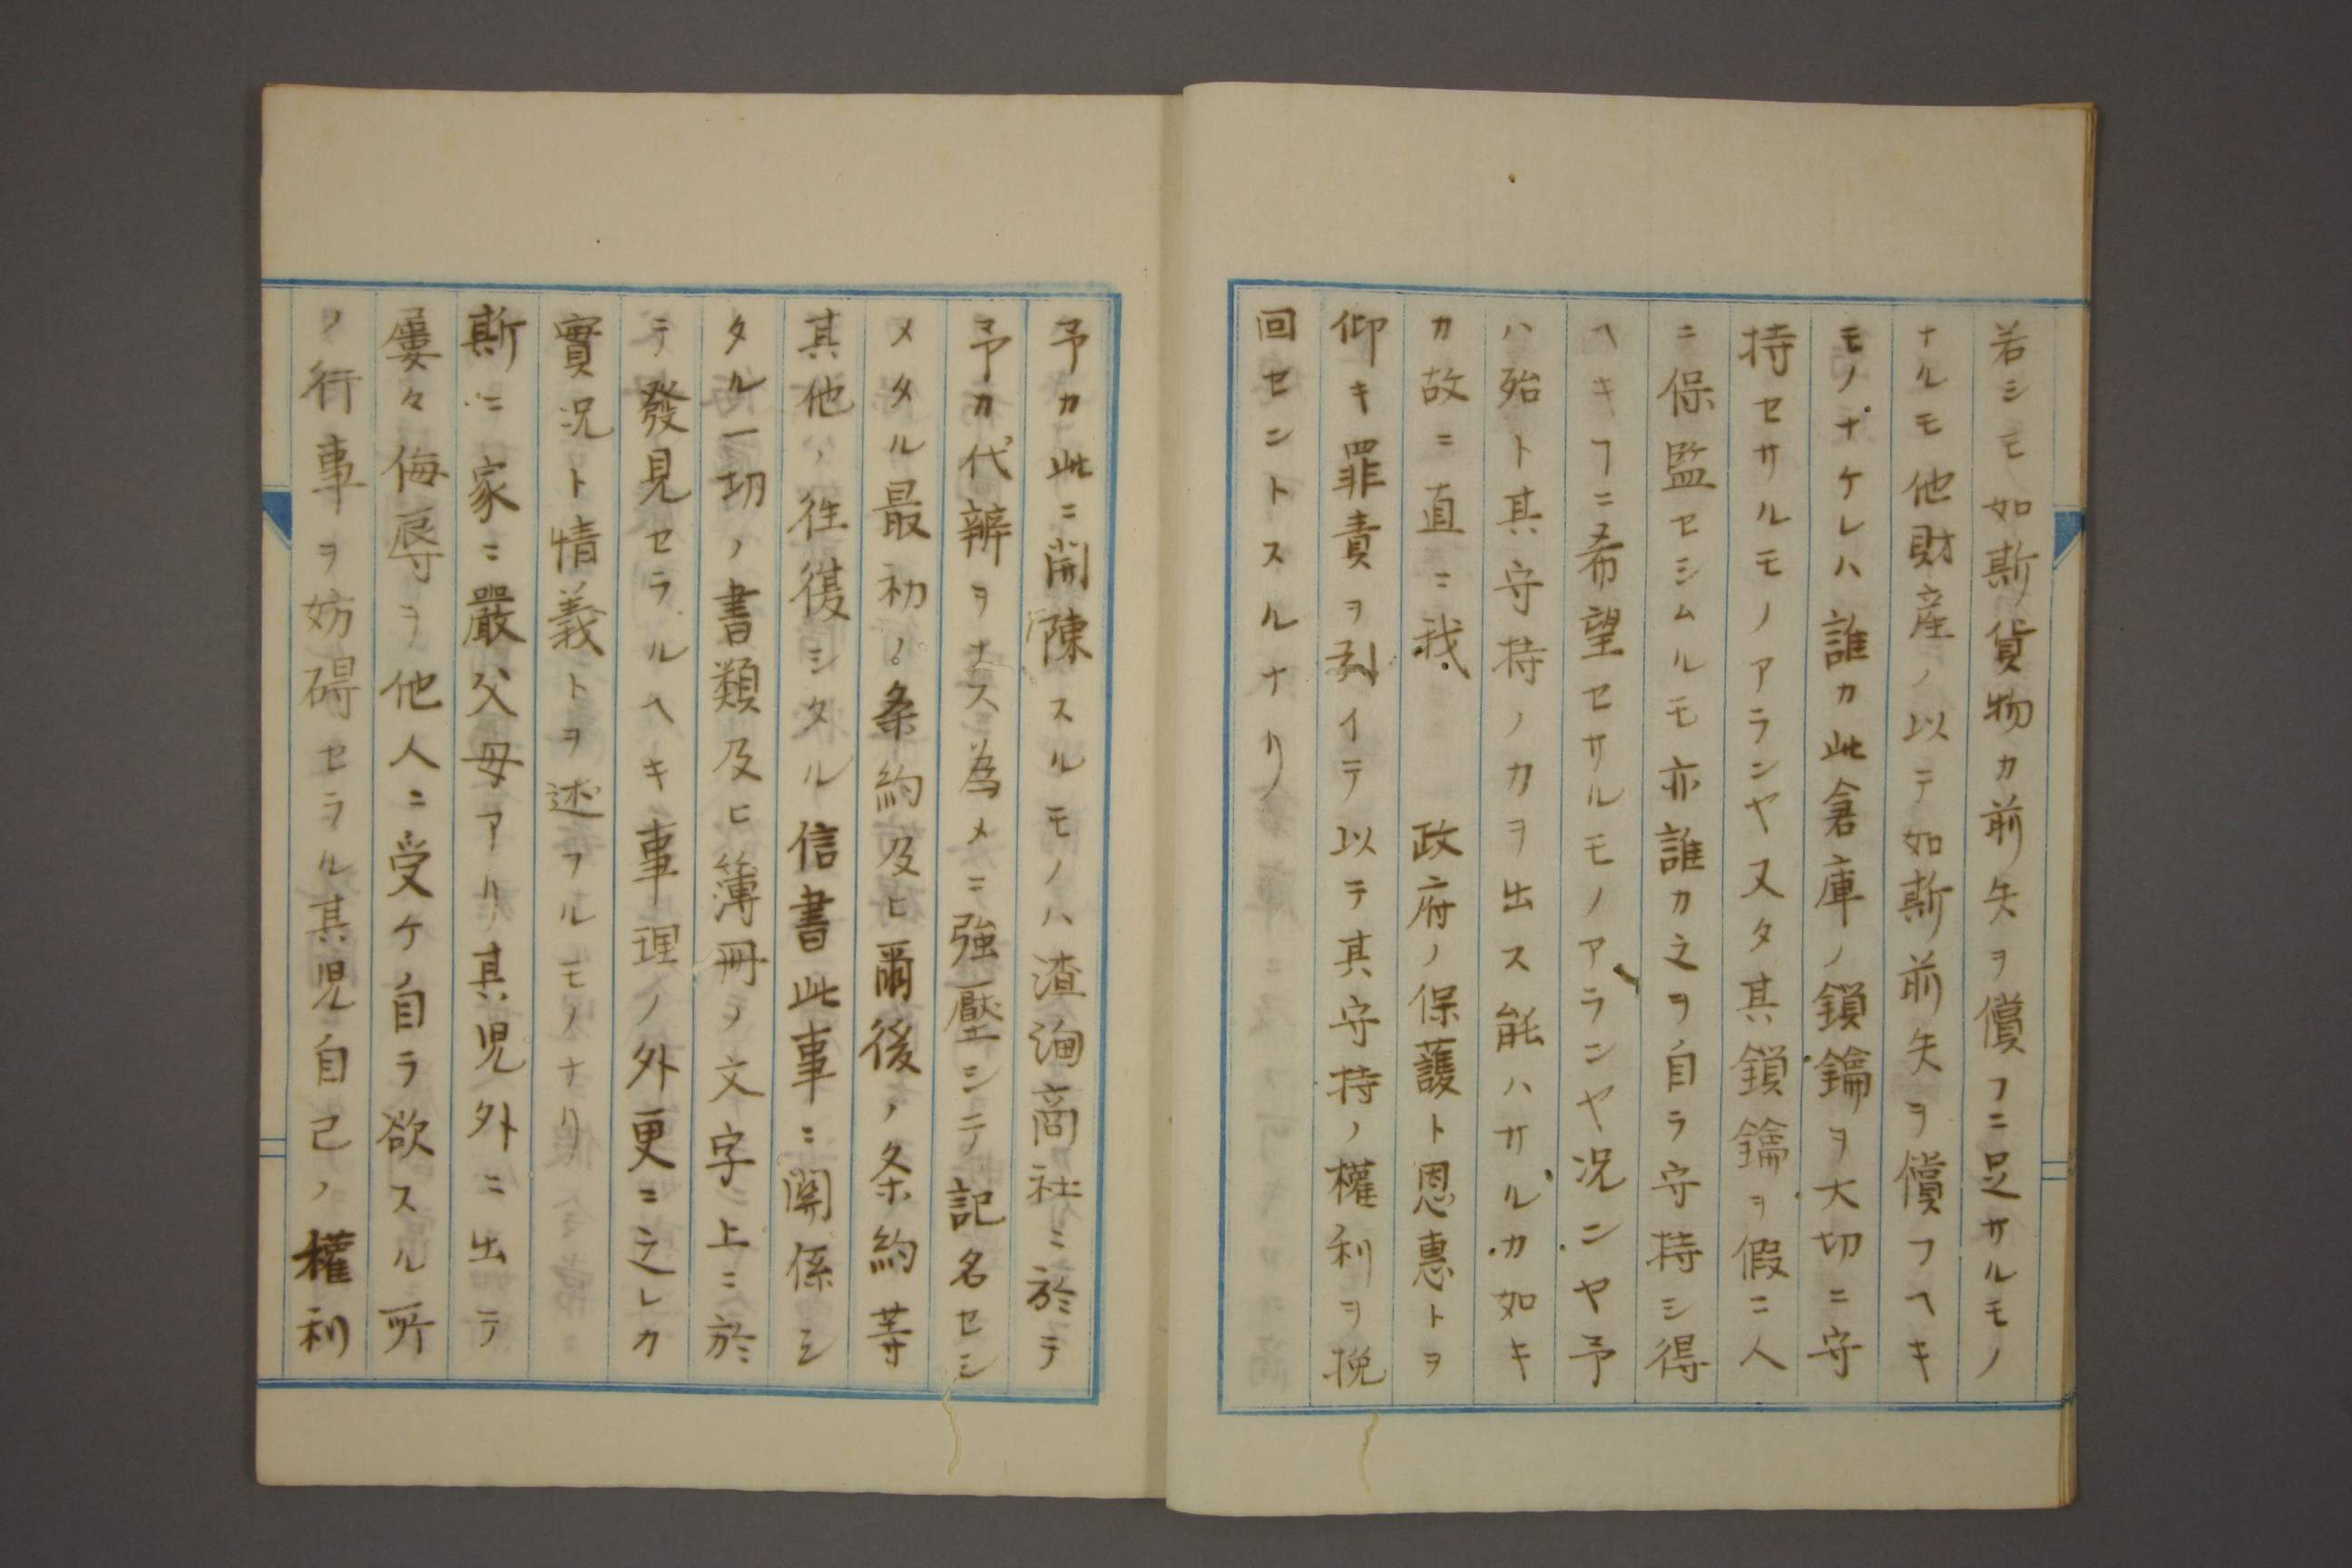 若シモ如斯貨物カ前失ヲ償フニ足サルモノ
ナルモ他財産ノ以テ如斯前失ヲ償フヘキ
モノナケレハ誰カ此倉庫ノ鎖鑰ヲ大切ニ守
持セサルモノアランヤ又タ其鎖鑰ヲ假ニ人
ニ保監セシムルモ亦誰カ之ヲ自ラ守持シ得
ヘキフニ希望セサルモノアランヤ况ンヤ予
ハ殆ト其守持ノカヲ出ス能ハサルカ如キ
カ故ニ直ニ我　政府ノ保護ト恩惠トヲ
仰キ罪責ヲ引イテ以テ其守持ノ權利ヲ挽
回セントスルナリ
予カ此ニ開陳スルモノハ渣洵商社ニ於テ
予カ代辨ヲナス為メニ強壓シテ記名セシ
メタル最初ノ条約及ヒ爾後ノ条約等
其他ノ往復シタル信書此事ニ関係シ
タル一切ノ書類及ヒ簿冊ノ文字上ニ於
テ發見セラルヘキ事理ノ外更ニ之レカ
實况ト情義トヲ述フルモノナリ
斯ニ家ニ嚴父母アリ其児外ニ出テ
屢々侮辱ヲ他人ニ受ケ自ラ欲スル所
ノ行事ヲ妨碍セラル其児自己ノ權利